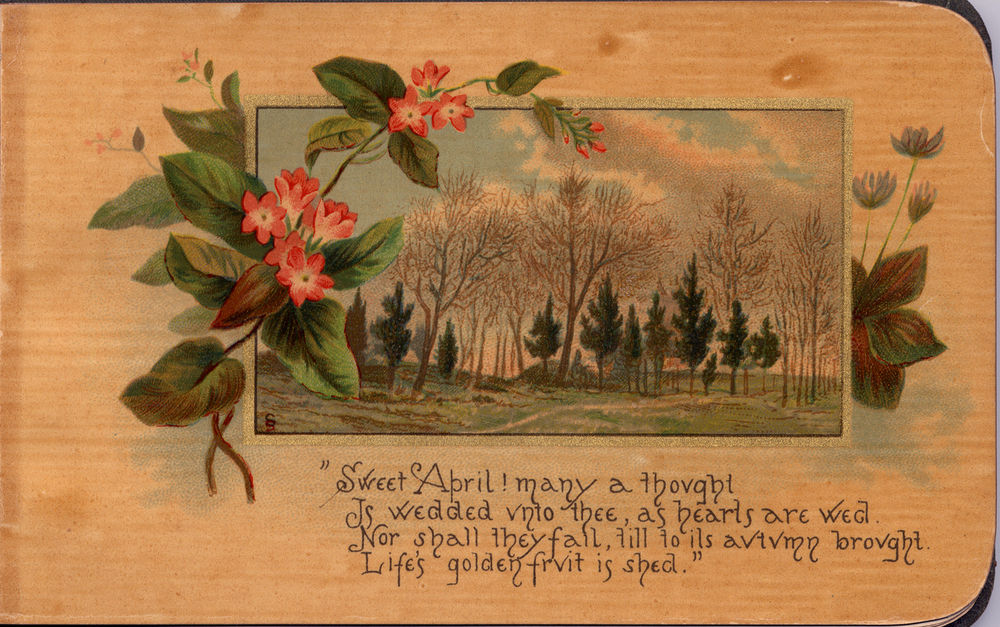 S
"Sweet April! many a thovght
Is wedded vnto thee, as hearts are wed.
Nor shall they fall, till to its avtvmn brovght.
Life's golden frvit is shed."